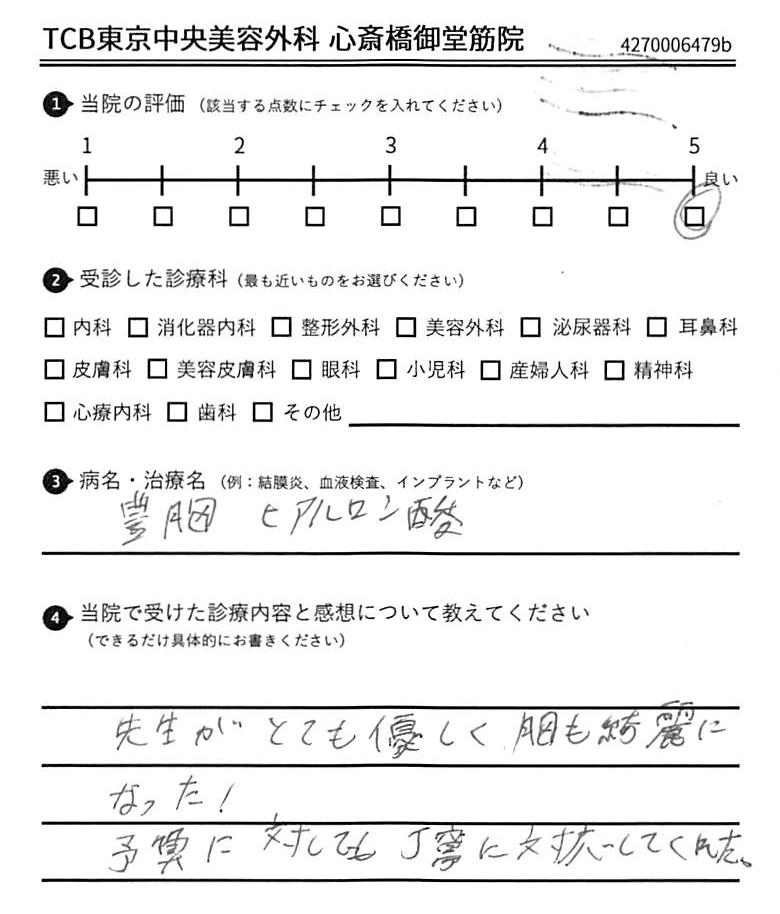 TCB東京中央美容外科 心斎橋御堂筋院 4270006479b
1 当院の評価 (該当する点数にチェックを入れてください)
1 2 3 4 5
悪い 良い
2 受診した診療科 (最も近いものをお選びください)
□ 内科 □ 消化器内科 □ 整形外科 □ 美容外科 □ 泌尿器科 □ 耳鼻科
□ 皮膚科 □ 美容皮膚科 □ 眼科 □ 小児科 □ 産婦人科 □ 精神科
□ 心療内科 □ 歯科 □ その他
3 病名・治療名 (例：結膜炎、血液検査、インプラントなど)
豊胸 ヒアルロン酸
4 当院で受けた診療内容と感想について教えてください
(できるだけ具体的にお書きください)
先生がとても優しく胸も綺麗に
なった！
予算に対しても丁寧に対応してくれた。